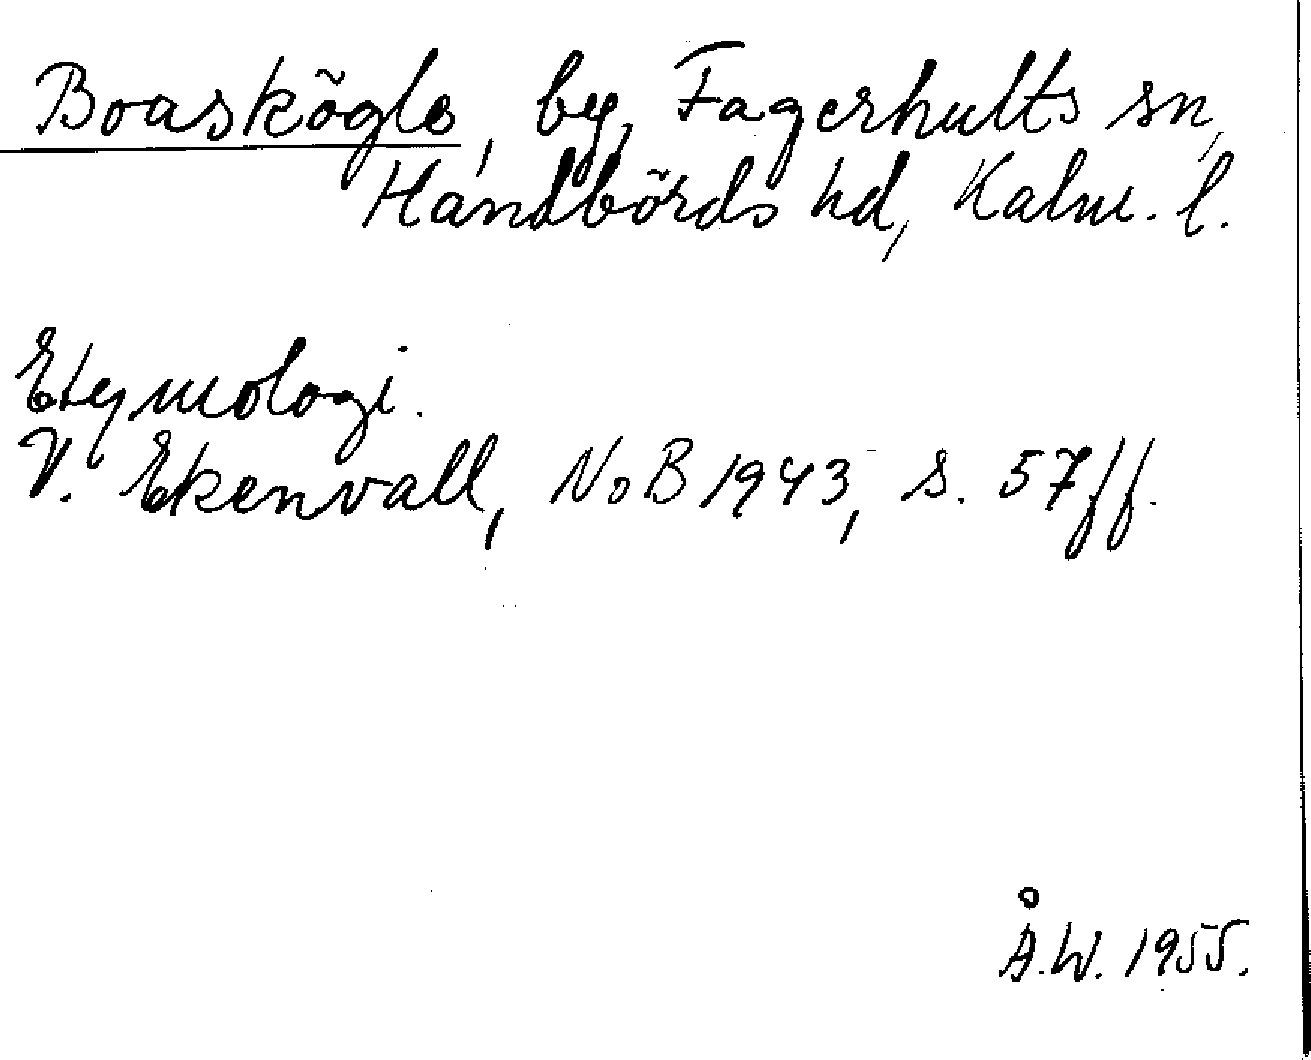 Boaskögle, by, Fagerhults sn,
Handbörds hd, Kalm. l.
Etymologi.
V. Ekenvall, NoB 1943, s. 57ff.
Å.W. 1955.